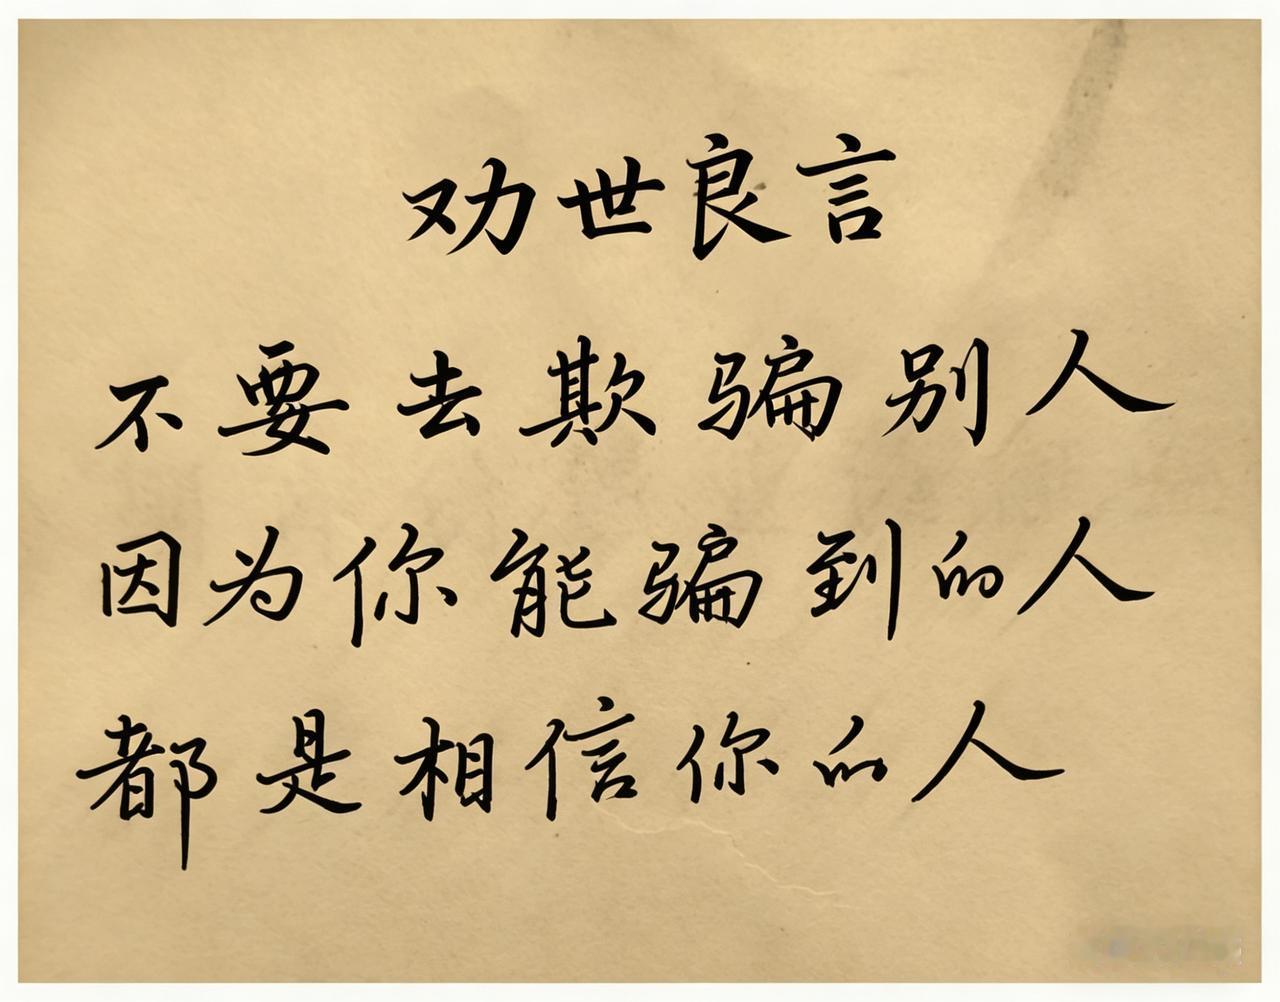 劝世良言
不要去欺骗别人
因为你能骗到的人
都是相信你的人